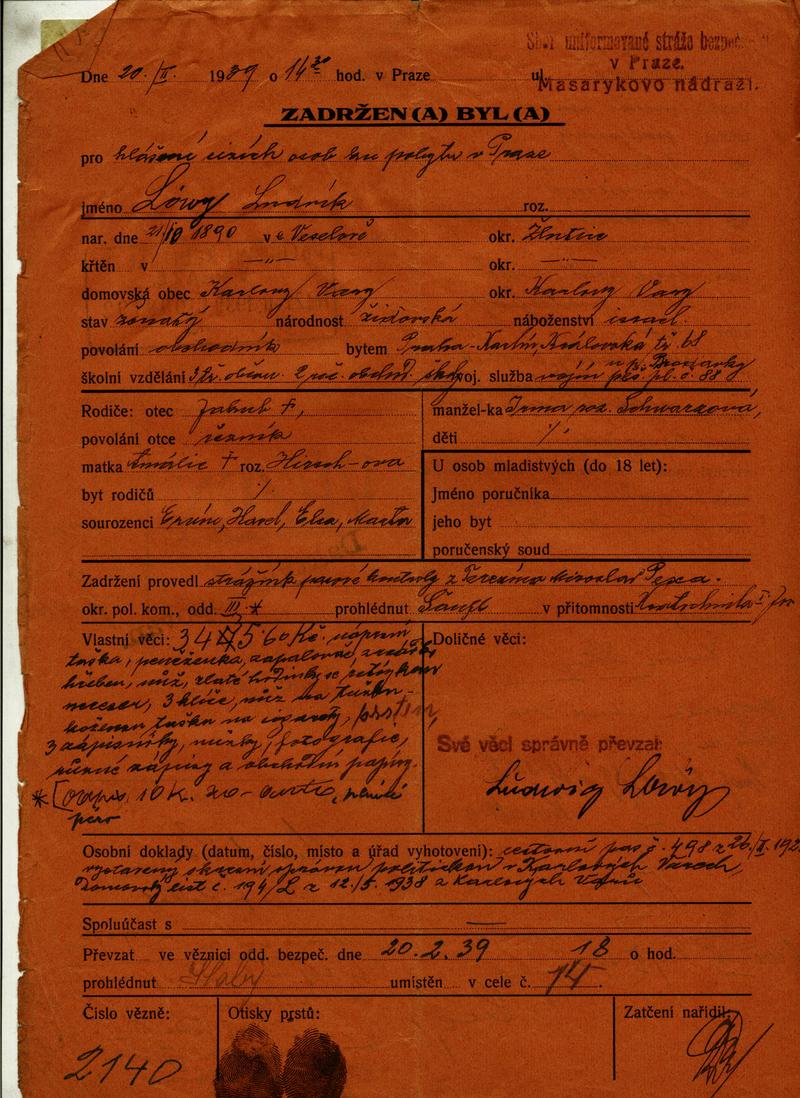 Sbor uniformované stráže bezpeč.
v Praze.
Masarykovo nádraží.
Dne 20./II. 1939 o 14 30 hod. v Praze ul.
ZADRŽEN(A) BYL(A)
pro hlášení cizích osob ku pobytu v Praze
jméno Löwy Ludvík roz.
nar. dne 21/10 1890 v Veselově okr. Žlutice
křtěn v —"— okr. —"—
domovská obec Karlovy Vary okr. Karlovy Vary
stav ženatý národnost židovská náboženství israel.
povolání obchodník bytem Praha-Karlín, Královská tř. 68
školní vzdělání 3 tř. občan. 2 roč. obchod. školy voj. služba vojín pěš. pl. č. 88
Rodiče: otec Jakub †,
povolání otce řezník
matka Amálie † roz. Hirsch-ova
byt rodičů /.
sourozenci Ervín, Karel, Elsa, Marta
manžel-ka Irma roz. Schwarzová,
děti /.
U osob mladistvých (do 18 let):
Jméno poručníka
jeho byt
poručenský soud
Zadržení provedl strážník pasové kontroly z Terezína Miroslav Pexa.
okr. pol. kom., odd. III. * prohlédnut v přítomnosti
Vlastní věci: 3475.60 Kč. náprsní
taška, peněženka, zapalovač, zrcátko
hřeben, nůž, zlaté hodinky se řetízkem
neceser, 3 klíče, nůž na tužku
kožená taška na cigarety, prsten,
3 zápisníky, nůžky, fotografie,
různé zápisy a obchodní papíry.
* [ 10 K. plnící
péro
Doličné věci:
Své věci správně převzal:
Ludwig Löwy
Osobní doklady (datum, číslo, místo a úřad vyhotovení): cestovní pas č. 498 z 26./II. 192
vystavený okresní správou politickou v Karlových Varech,
Domovský list č. 194/L z 12./5. 1938 z Karlových Varů
Spoluúčast s —
Převzat ve věznici odd. bezpeč. dne 20.2.39 18 o hod.
prohlédnut umístěn v cele č. 14.
Číslo vězně:
2140
Otisky prstů:
Zatčení nařídil: